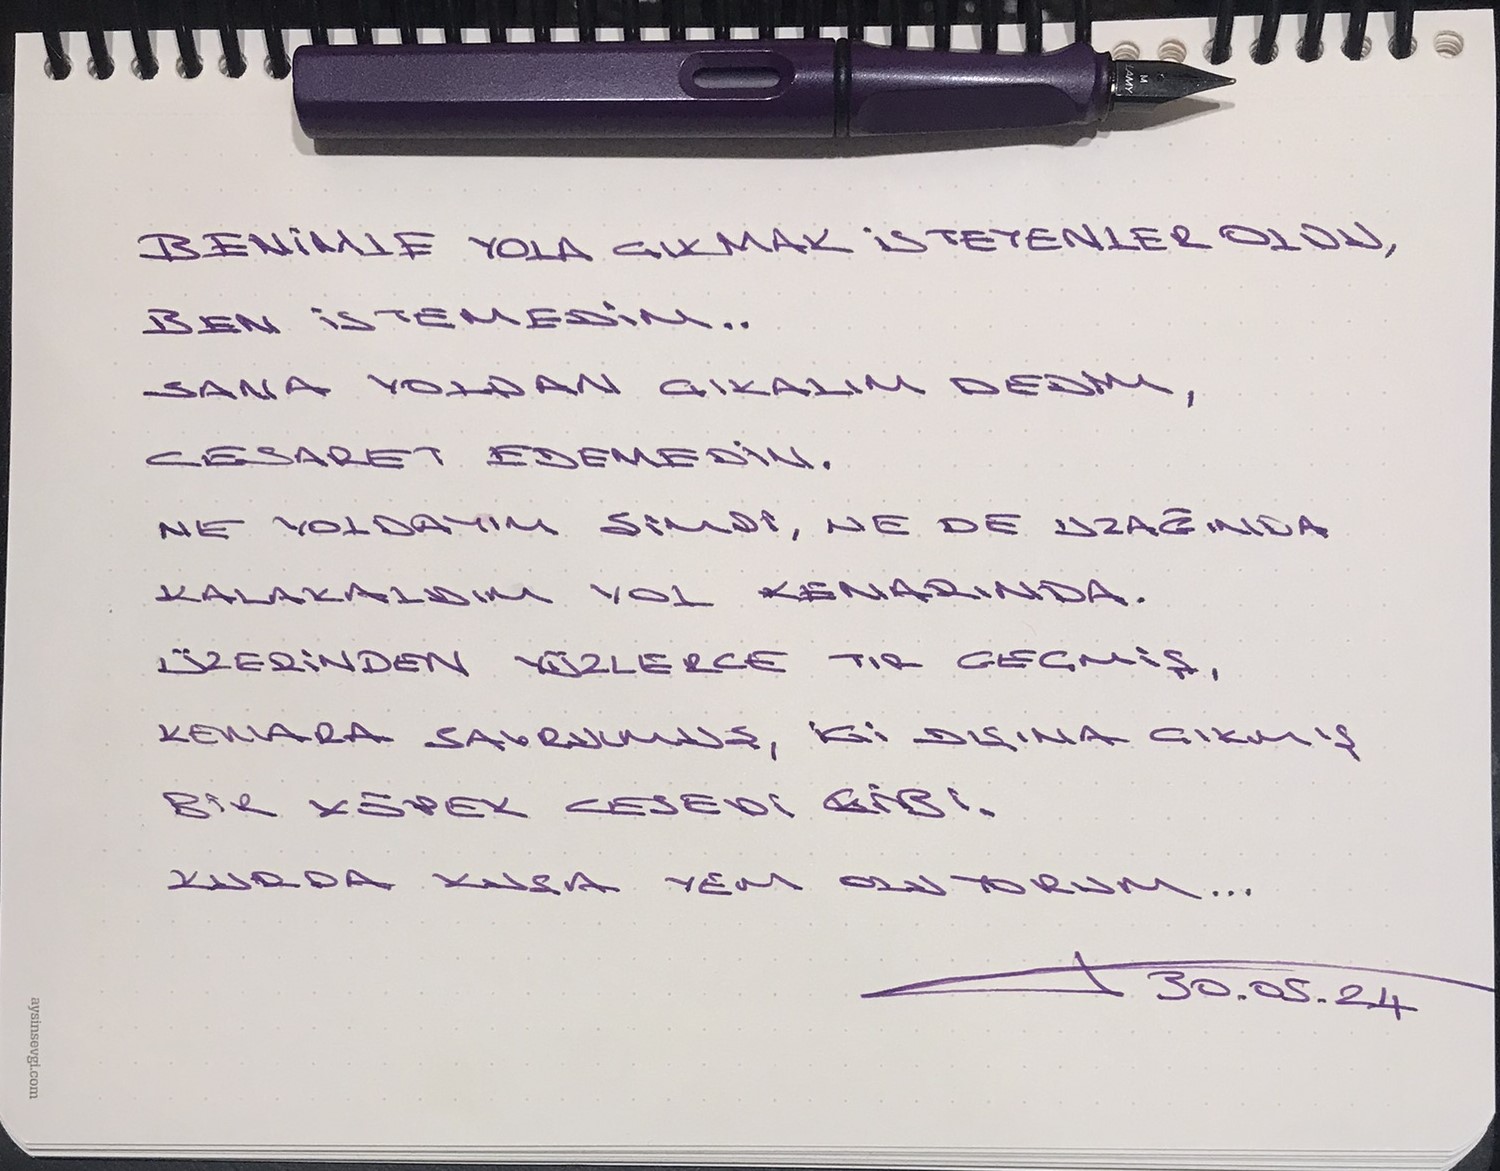 LAMY M
BENİMLE YOLA ÇIKMAK İSTEYENLER OLDU,
BEN İSTEMEDİM..
SANA YOLDAN ÇIKALIM DEDİM,
CESARET EDEMEDİN.
NE YOLDAYIM ŞİMDİ, NE DE UZAĞINDA
KALAKALDIM YOL KENARINDA.
ÜZERİNDEN YÜZLERCE TIR GEÇMİŞ,
KENARA SAVRULMUŞ, İÇİ DIŞINA ÇIKMIŞ
BİR KÖPEK CESEDİ GİBİ.
KURDA KUŞA YEM OLUYORUM...
30.05.24
aysinsevgi.com